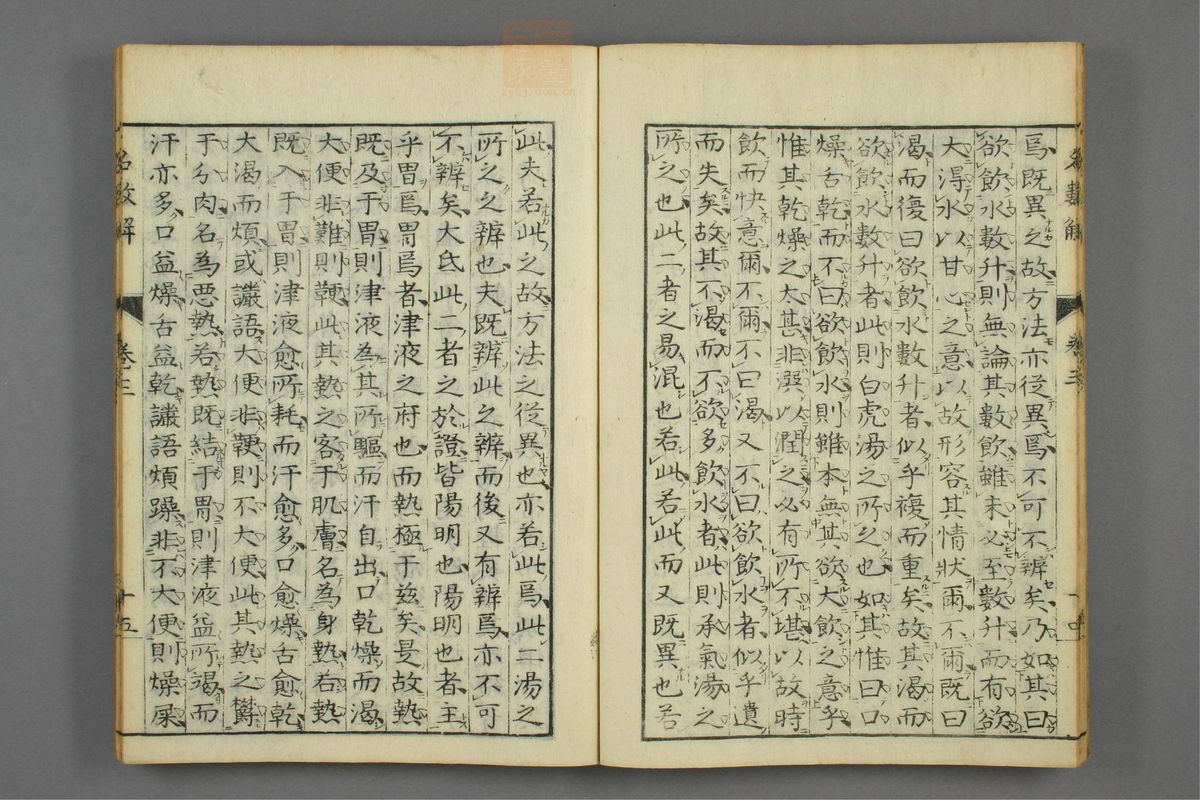 焉既異之故方法亦從異焉不可不辨矣乃如其曰
欲飲水數升則無論其數飲雖未必至數升而有欲
大得水以甘心之意以故形容其情狀爾不爾既曰
渴而復曰欲飲水數升者似乎複而重矣故其渴而
欲飲水數升者此則白虎湯之所之也如其惟曰口
燥舌乾而不曰欲飲水則雖本無其欲大飲之意乎
惟其乾燥之太甚非潠以潤之必有所不堪以故時
飲而快意爾不爾不曰渴又不曰欲飲水者似乎遺
而失矣故其不渴而不欲多飲水者此則承氣湯之
所之也此二者之易混也若此若此而又既異也若
名數解
卷三
十四
此夫若此之故方法之從異也亦若此焉此二湯之
所之之辨也夫既辨此之辨而後又有辨焉亦不可
不辨矣大氐此二者之於證皆陽明也陽明也者主
乎胃焉胃焉者津液之府也而熱極于茲矣是故熱
既及于胃則津液為其所驅而汗自出口乾燥而渴
大便非難則鞕此其熱之客于肌膚名為身熱若熱
既入于胃則津液愈所耗而汗愈多口愈燥舌愈乾
大渴而煩或讝語大便非鞕則不大便此其熱之鬱
于分肉名為惡熱若熱既結于胃則津液益所竭而
汗亦多口益燥舌益乾讝語煩躁非不大便則燥屎
名數解
卷三
十五